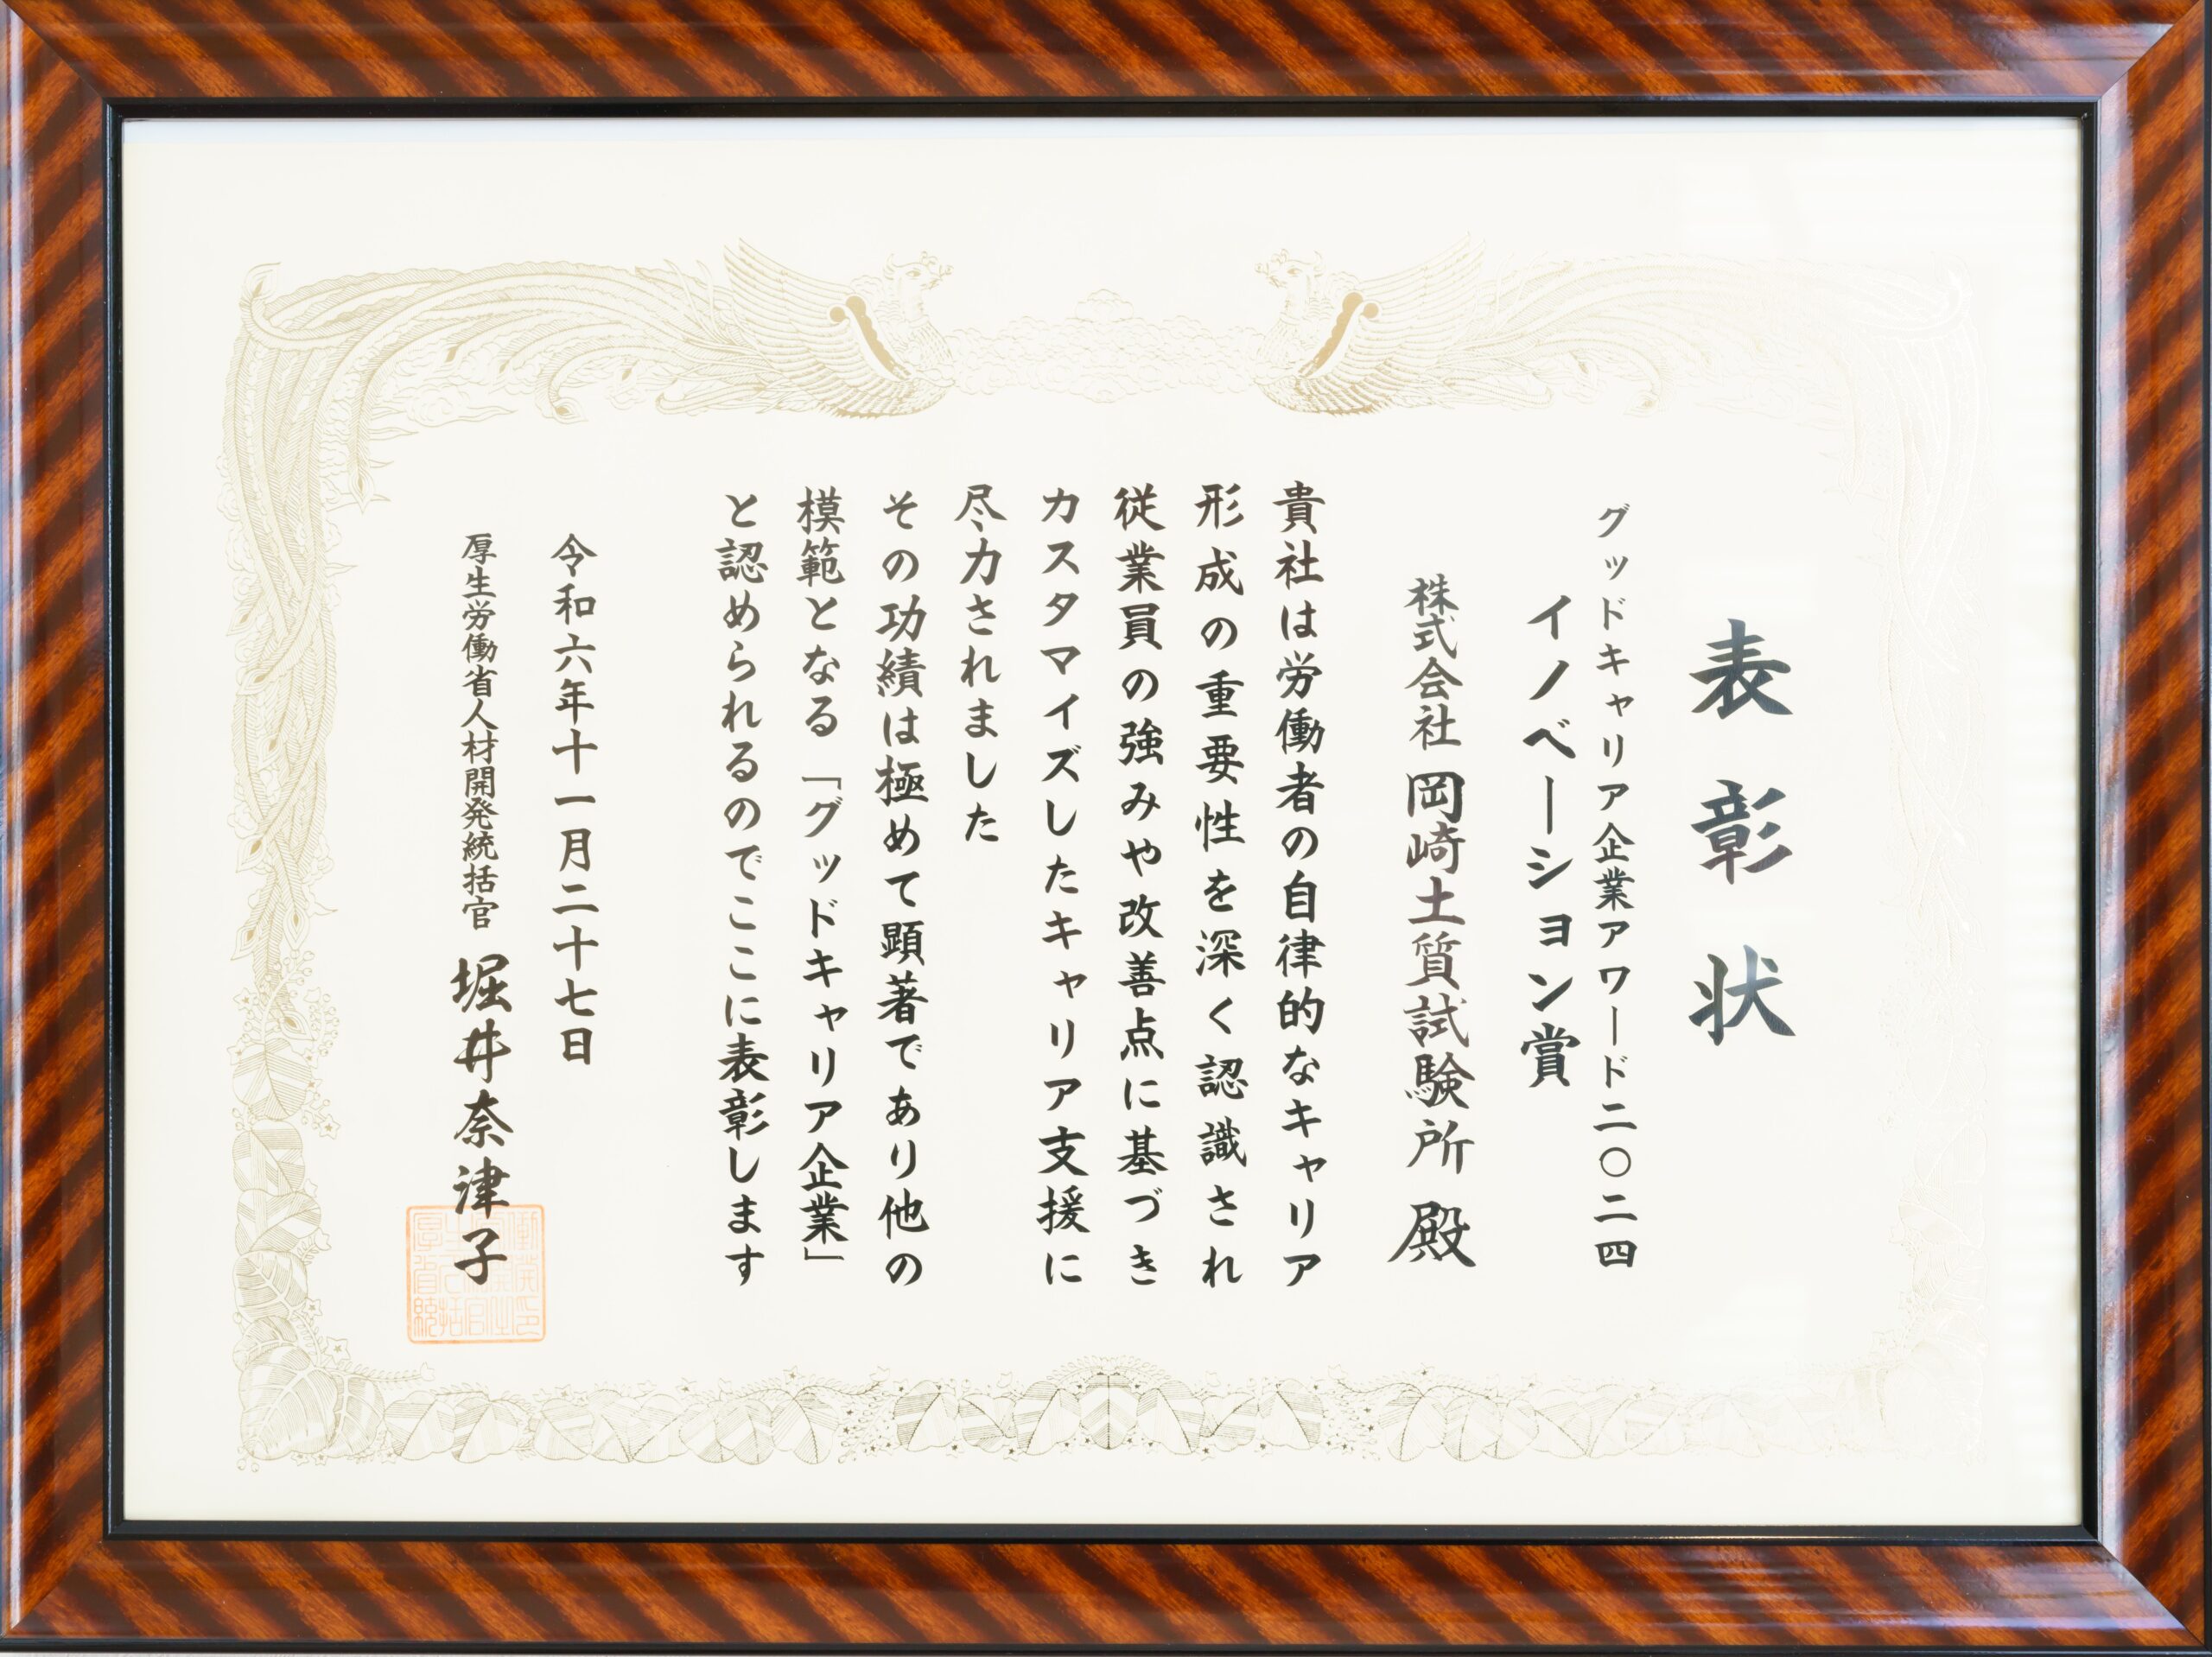 表彰状
グッドキャリア企業アワード二〇二四
イノベーション賞
株式会社 岡崎土質試験所 殿
貴社は労働者の自律的なキャリア
形成の重要性を深く認識され
従業員の強みや改善点に基づき
カスタマイズしたキャリア支援に
尽力されました
その功績は極めて顕著であり他の
模範となる「グッドキャリア企業」
と認められるのでここに表彰します
令和六年十一月二十七日
厚生労働省人材開発統括官 堀井奈津子